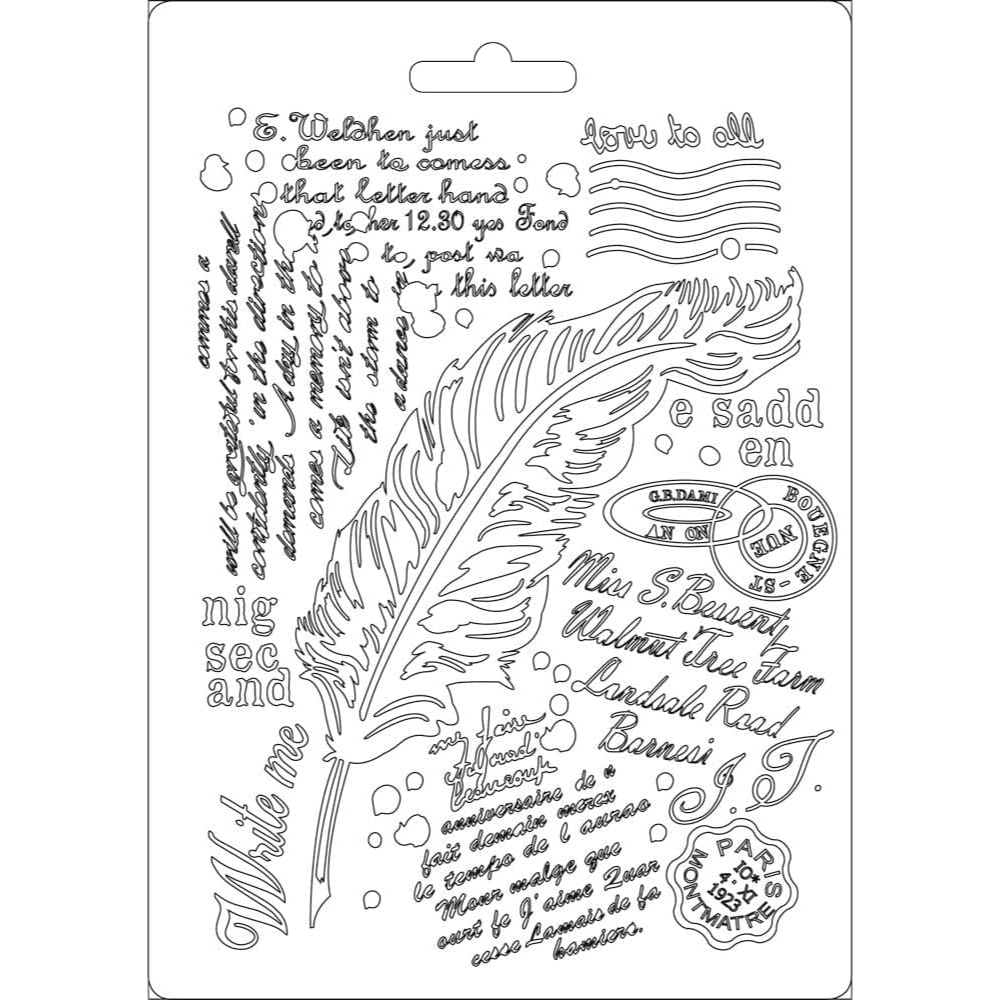 E. Weldhen just
been to comess
that letter hand
to her 12.30 yes Fond
to, post wa
this letter
love to all
ammes a
will be grateful for this darell
confidently in the direction
demands A day in the
comes a memory to
Life isn't above
the storm to
a dance in
e sadd
en
G.B.DAMI
AN ON
BOUEGNE-ST-
NUE
Miss S. Bessenty
Walmut Tree Farm
Landsale Road
Barnesi
J. T.
nig
sec
and
Write me
my faire
beaucoup
anniversaire de "
fait demain merex
le tempo de l aurao
Mour malge que
ourt fe J'aime Quar
cesse Lamais de fa
hamiers.
PARIS
10*
4· XI
1923
MONTMATRE